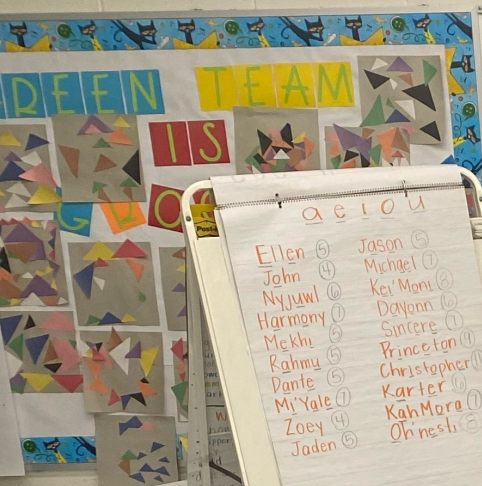 REEN TEAM
IS
GOO
Post-it
a e i o u
Ellen 5
John 4
Nyjuwl 6
Harmony 7
Mekhi 5
Rahmu 5
Dante 5
Mi'Yale 7
Zoey 4
Jaden 5
Jason 5
Michael 7
Kei'Moni 8
Dayonn 6
Sincere 7
Princeton 9
Christopher 11
Karter 6
KahMora 7
Oh'nesti 8